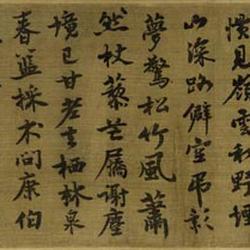 慣見嶺雲和野
山深路僻空弔影
夢驚松竹風蕭
然杖藜芒屩謝塵
境已甘老去棲林泉
春籃採朮問康伯